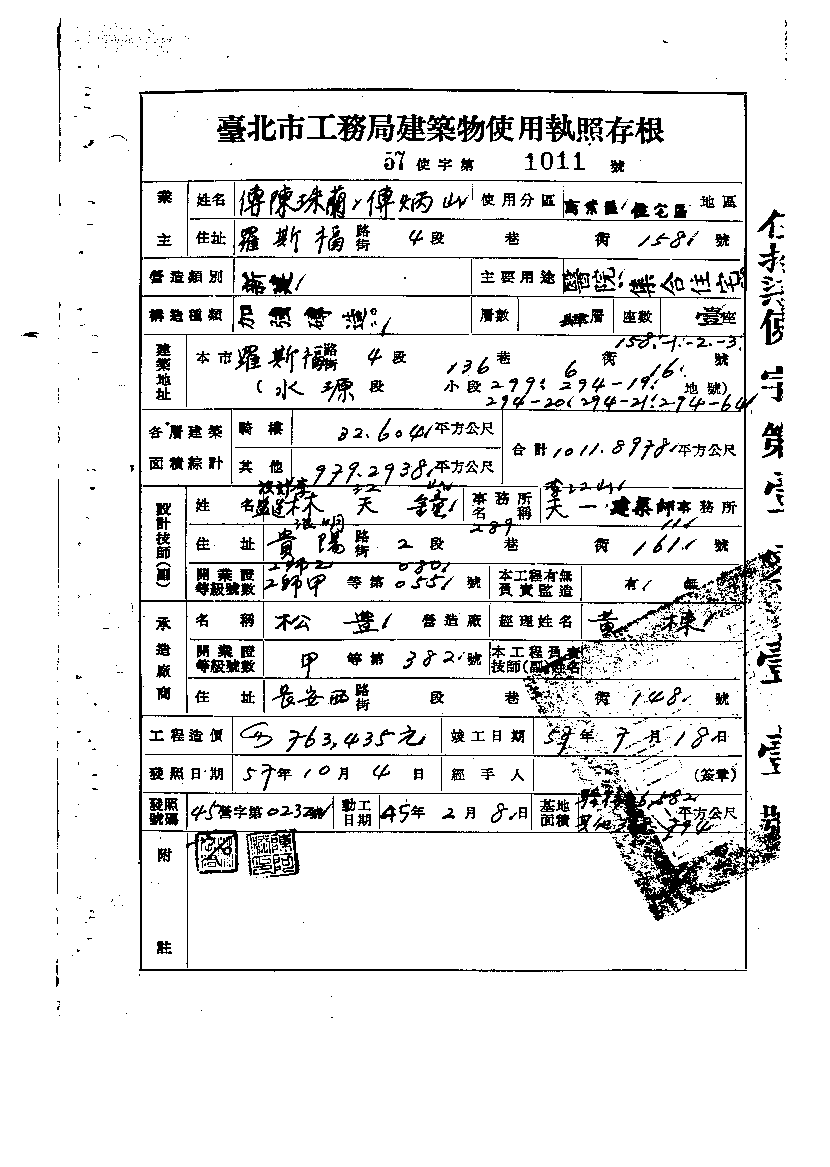 臺北市工務局建築物使用執照存根
57 使字第 1011 號
業主 姓名 傅陳珠蘭、傅炳山 使用分區 商業區 住宅區 地區
住址 羅斯福 路街 4 段 巷 街 158 號
營造類別 新建 主要用途 醫院 集合住宅
構造種類 加強磚造 層數 層 座數 壹座
158-1-2-3
建築地址 本市 羅斯福 路街 4 段 136 巷 6 街 16 號
(水源 段 小段 299 294-19 地號)
294-20 294-21 294-64
各層建築面積綜計 騎樓 32.604 平方公尺 合計 1011.8978 平方公尺
其他 979.2938 平方公尺
設計技師(副) 姓名 林天鐘 事務所名稱 天一建築師事務所
289 111
住址 貴陽 路街 2 段 巷 街 161 號
開業證等級號數 工師甲 等第 0551 號 本工程有無負責監造 有 無
承造廠商 名稱 松豊 營造廠 經理姓名 黃棟
開業證等級號數 甲 等第 382 號 本工程負責技師(副)姓名
住址 長安西 路街 段 巷 街 148 號
工程造價 763,435元 竣工日期 年 月 18 日
發照日期 57 年 10 月 4 日 經手人 (簽章)
發照號碼 45營字第0232號 動工日期 45 年 2 月 8 日 基地面積 平方公尺
附註
字第壹
壹壹號